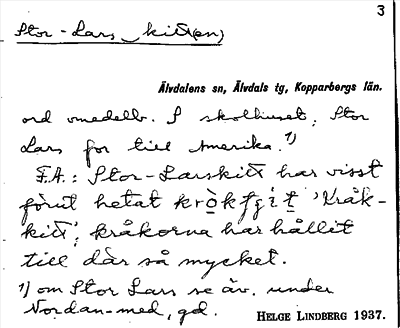 3
Stor-Lars kitt(en)
Älvdalens sn, Älvdals tg, Kopparbergs län.
ord omedelb. S skolhuset; Stor
Lars for till Amerika.¹⁾
F.A.: Stor-Larskitt har visst
förut hetat 'Kråk-
kitt'; kråkorna har hållit
till där så mycket.
1) om Stor Lars se äv. under
Nordan-med, gd.
HELGE LINDBERG 1937.